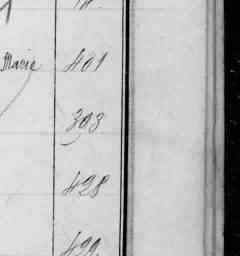 Marie 401
303
428
429